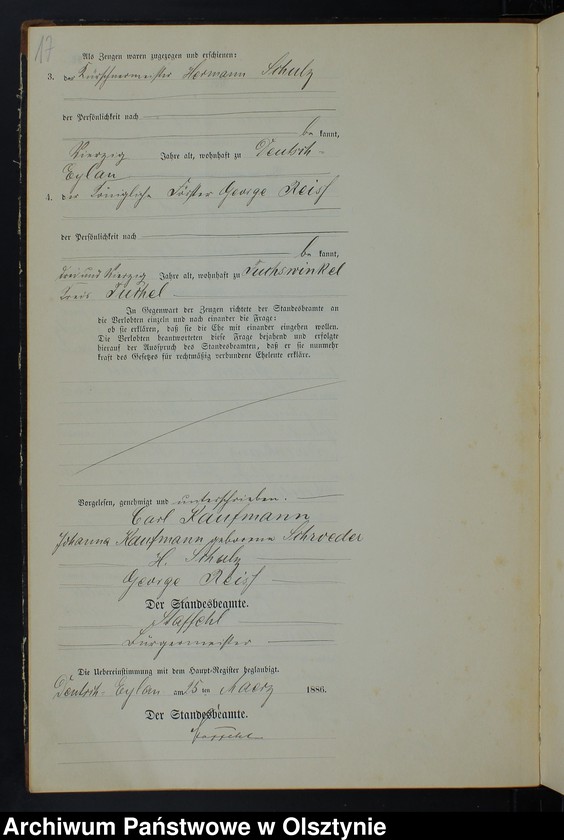 17
Als Zeugen waren zugezogen und erschienen:
3. der Kürschnermeister Hermann Schulz
der Persönlichkeit nach
be kannt,
Vierzig Jahre alt, wohnhaft zu Deutsch-
Eylau
4. der Königliche Förster George Reiss
der Persönlichkeit nach
be kannt,
drei und Vierzig Jahre alt, wohnhaft zu Fuchswinkel
Kreis Tuchel
In Gegenwart der Zeugen richtete der Standesbeamte an
die Verlobten einzeln und nach einander die Frage:
ob sie erklären, daß sie die Ehe mit einander eingehen wollen.
Die Verlobten beantworteten diese Frage bejahend und erfolgte
hierauf der Ausspruch des Standesbeamten, daß er sie nunmehr
kraft des Gesetzes für rechtmäßig verbundene Eheleute erkläre.
Vorgelesen, genehmigt und unterschrieben.
Carl Kaufmann
Johanna Kaufmann geborene Schroeder
H. Schulz
George Reiss
Der Standesbeamte.
Staffehl
Bürgermeister
Die Uebereinstimmung mit dem Haupt-Register beglaubigt.
Deutsch-Eylau am 15 ten Maerz 1886.
Der Standesbeamte.
Staffehl
Archiwum Państwowe w Olsztynie